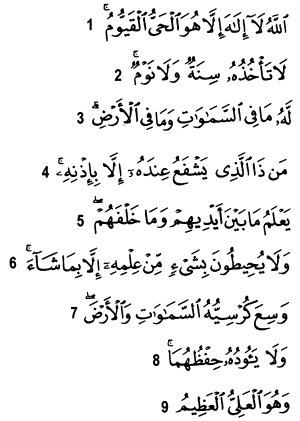 ٱللَّهُ لَآ إِلَٰهَ إِلَّا هُوَ ٱلْحَىُّ ٱلْقَيُّومُ ۚ 1
لَا تَأْخُذُهُۥ سِنَةٌ وَلَا نَوْمٌ ۚ 2
لَّهُۥ مَا فِى ٱلسَّمَٰوَٰتِ وَمَا فِى ٱلْأَرْضِ ۗ 3
مَن ذَا ٱلَّذِى يَشْفَعُ عِندَهُۥٓ إِلَّا بِإِذْنِهِۦ ۚ 4
يَعْلَمُ مَا بَيْنَ أَيْدِيهِمْ وَمَا خَلْفَهُمْ ۖ 5
وَلَا يُحِيطُونَ بِشَىْءٍ مِّنْ عِلْمِهِۦٓ إِلَّا بِمَا شَآءَ ۚ 6
وَسِعَ كُرْسِيُّهُ ٱلسَّمَٰوَٰتِ وَٱلْأَرْضَ ۖ 7
وَلَا يَـُٔودُهُۥ حِفْظُهُمَا ۚ 8
وَهُوَ ٱلْعَلِىُّ ٱلْعَظِيمُ 9